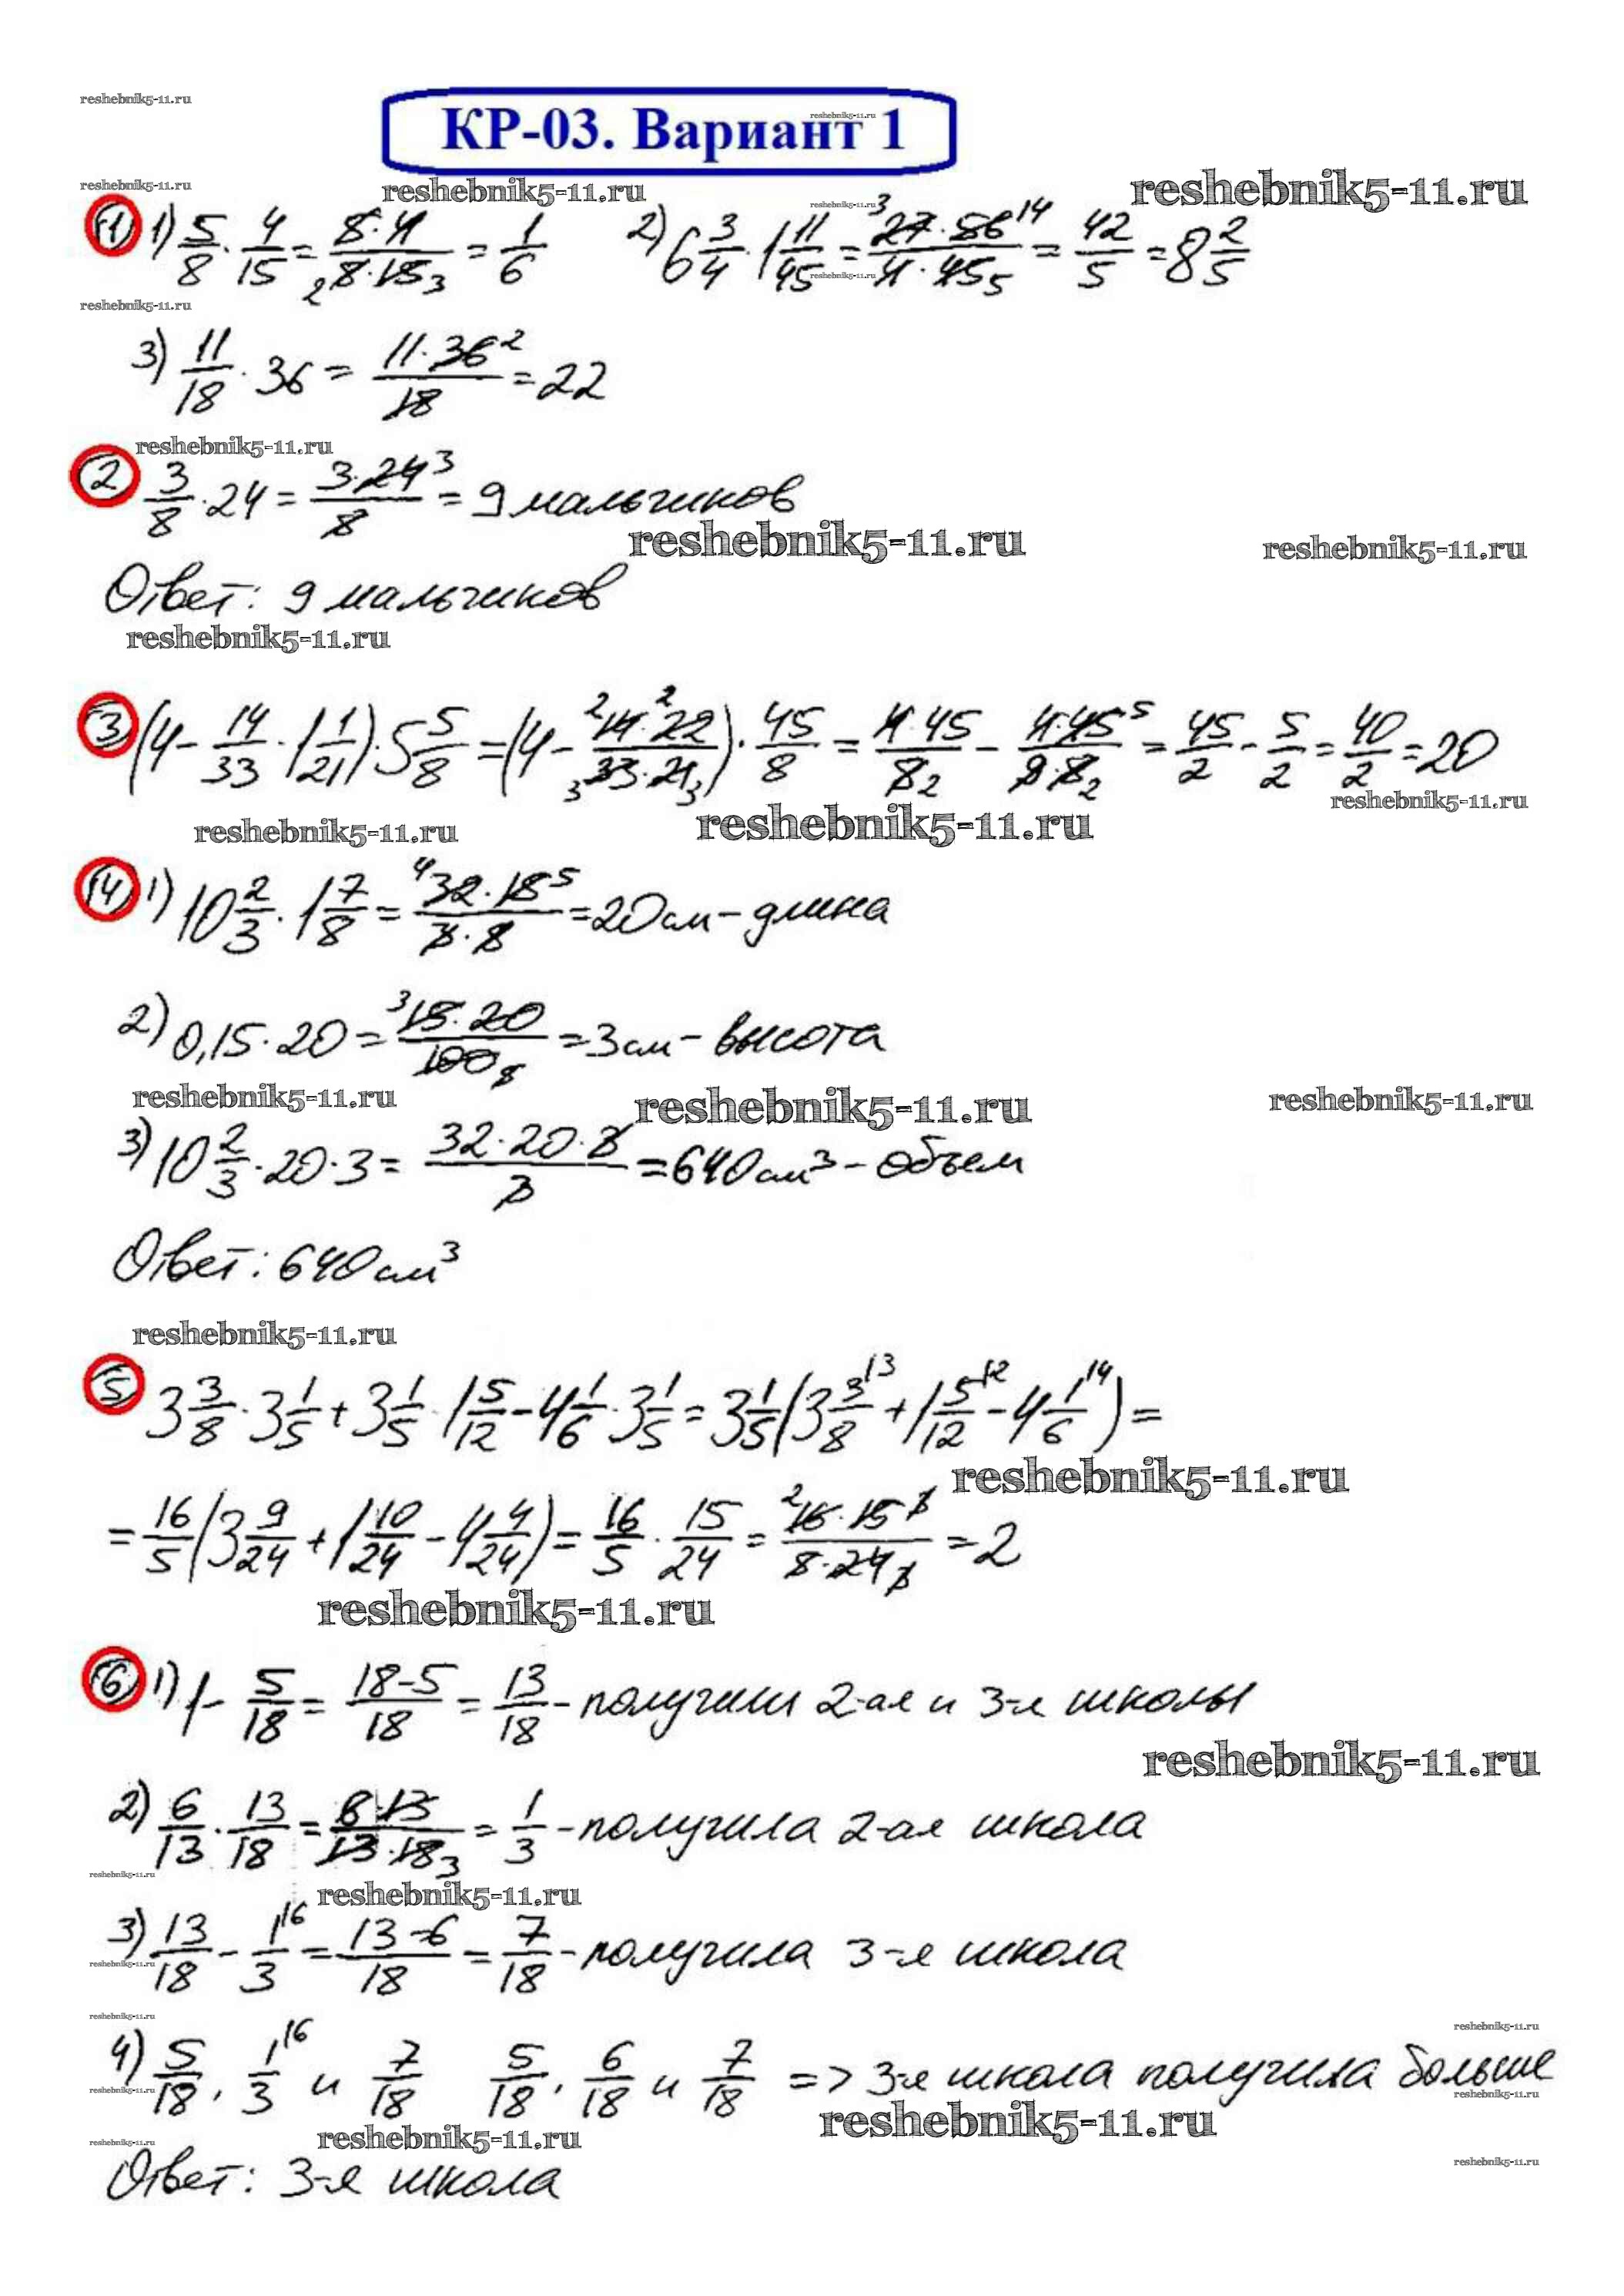 reshebnik5-11.ru
КР-03. Вариант 1
reshebnik5-11.ru
reshebnik5-11.ru
reshebnik5-11.ru
reshebnik5-11.ru
1) 1) 5/8 · 4/15 = 5·4/8·15 = 1/6 2) 6 3/4 · 1 11/45 = 27·56/4·45 = 42/5 = 8 2/5
reshebnik5-11.ru
3) 11/18 · 36 = 11·36/18 = 22
reshebnik5-11.ru
2) 3/8 · 24 = 3·24/8 = 9 мальчиков
reshebnik5-11.ru
reshebnik5-11.ru
Ответ: 9 мальчиков
reshebnik5-11.ru
3) (4 - 14/33 · 1 1/21) · 5 5/8 = (4 - 14·22/33·21) · 45/8 = 4·45/8 - 4·45/9·8 = 45/2 - 5/2 = 40/2 = 20
reshebnik5-11.ru
reshebnik5-11.ru
reshebnik5-11.ru
4) 1) 10 2/3 · 1 7/8 = 32·15/3·8 = 20 см - длина
2) 0,15 · 20 = 15·20/100 = 3 см - высота
reshebnik5-11.ru
reshebnik5-11.ru
reshebnik5-11.ru
3) 10 2/3 · 20 · 3 = 32·20·3/3 = 640 см³ - объем
Ответ: 640 см³
reshebnik5-11.ru
5) 3 3/8 · 3 1/5 + 3 1/5 · 1 5/12 - 4 1/6 · 3 1/5 = 3 1/5 (3 3/8 + 1 5/12 - 4 1/6) =
reshebnik5-11.ru
= 16/5 (3 9/24 + 1 10/24 - 4 4/24) = 16/5 · 15/24 = 16·15/5·24 = 2
reshebnik5-11.ru
6) 1) 1 - 5/18 = 18-5/18 = 13/18 - получили 2-ая и 3-я школы
reshebnik5-11.ru
2) 6/13 · 13/18 = 6·13/13·18 = 1/3 - получила 2-ая школа
reshebnik5-11.ru
reshebnik5-11.ru
3) 13/18 - 1/3 = 13-6/18 = 7/18 - получила 3-я школа
reshebnik5-11.ru
reshebnik5-11.ru
reshebnik5-11.ru
4) 5/18, 1/3 и 7/18 5/18, 6/18 и 7/18 => 3-я школа получила больше
reshebnik5-11.ru
reshebnik5-11.ru
reshebnik5-11.ru
reshebnik5-11.ru
reshebnik5-11.ru
reshebnik5-11.ru
Ответ: 3-я школа